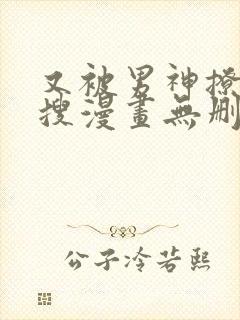 又被男神撩
搜漫畫無刪
公子冷若熙